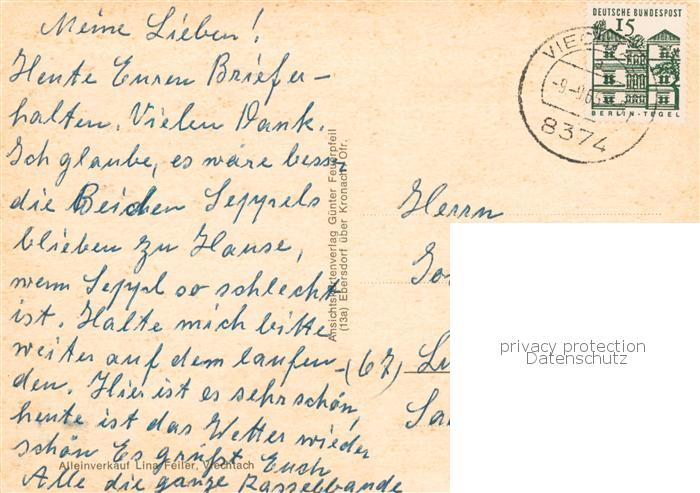 Meine Lieben!
Heute Euren Briefer-
halten. Vielen Dank.
Ich glaube, es wäre bess.
die Beiden Seppels
blieben zu Hause,
wenn Seppl so schlecht
ist. Halte mich bitte
weiter auf dem laufen-
den. Hier ist es sehr schön,
heute ist das Wetter wieder
schön Es grüßt Euch
Alle die ganze Rasselbande
Alleinverkauf Lina Feiler, Viechtach
Ansichtskartenverlag Günter Feuerpfeil
(13a) Ebersdorf über Kronach/Ofr.
DEUTSCHE BUNDESPOST
15
BERLIN-TEGEL
VIEC
8374
Herrn
(67)
privacy protection
Datenschutz